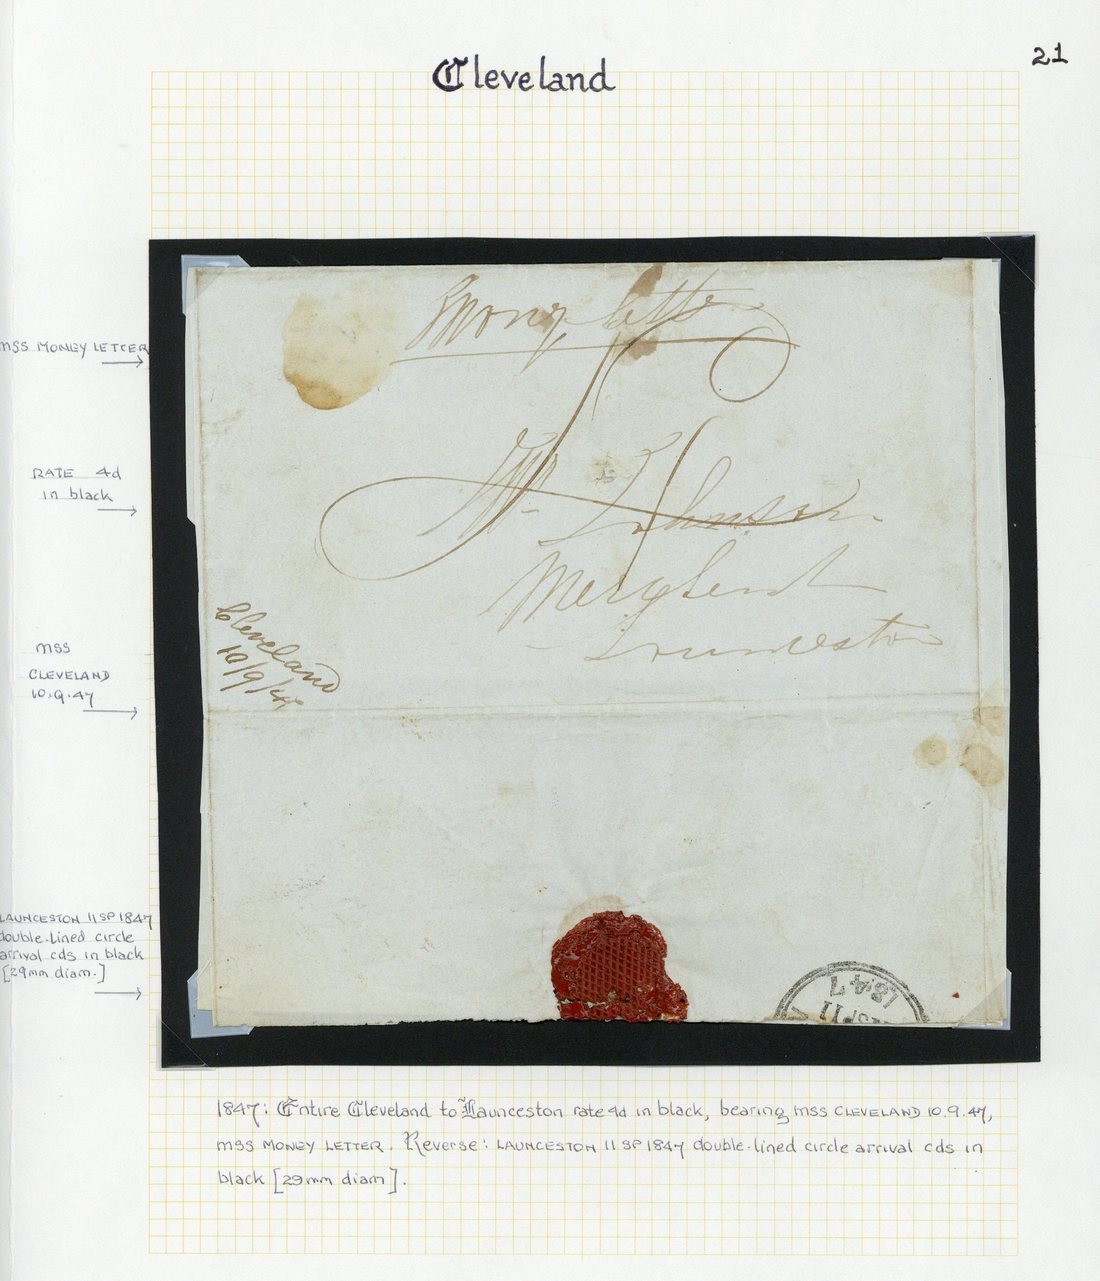 Cleveland
21
MSS MONEY LETTER
RATE 4d
in black
MSS
CLEVELAND
10.9.47
LAUNCESTON 11 SP 1847
double-lined circle
arrival cds in black
[29mm diam.]
Money letter
Mr Johnson
Merchant
Launceston
Cleveland
10/9/47
1847
SP 11
1847: Entire Cleveland to Launceston rate 4d in black, bearing MSS CLEVELAND 10.9.47,
MSS MONEY LETTER. Reverse: LAUNCESTON 11 SP 1847 double-lined circle arrival cds in
black [29mm diam].